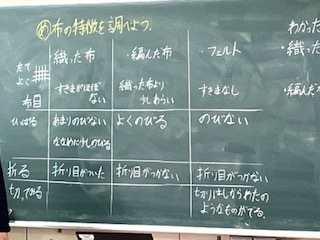 め 布の特徴を調べよう。
織った布 ・編んた布 ・フェルト
たて
よこ
布目
すきまがほぼない
織った布より少しあらい
すきまなし
ひっぱる
あまりのびない
ななめに少しのびる
よくのびる
のびない
折る
折り目がついた
折り目がつかない
折り目がつかない
切ってみる
切りはしからわたの
ようなものがでる。
わかった
・織っ
・編んだ